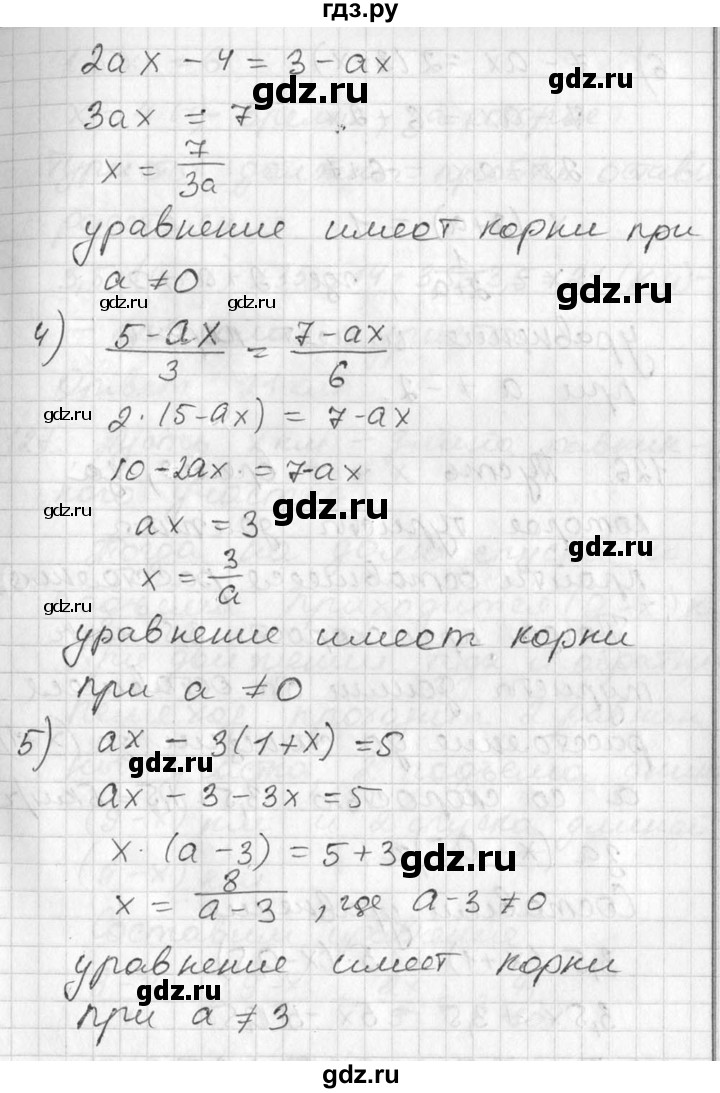 гдз.ру
2ax - 4 = 3 - ax
gdz.ru
gdz.ru
3ax = 7
x = 7/3a
уравнение имеет корни при
a ≠ 0
gdz.ru
gdz.ru
gdz.ru
4) (5-ax)/3 = (7-ax)/6
gdz.ru
2·(5-ax) = 7-ax
10-2ax = 7-ax
gdz.ru
gdz.ru
ax = 3
gdz.ru
x = 3/a
gdz.ru
уравнение имеет корни
при a ≠ 0
5) ax - 3(1+x) = 5
gdz.ru
ax - 3 - 3x = 5
x·(a-3) = 5+3
gdz.ru
x = 8/(a-3), где a-3 ≠ 0
уравнение имеет корни
gdz.ru
gdz.ru
при a ≠ 3
gdz.ru